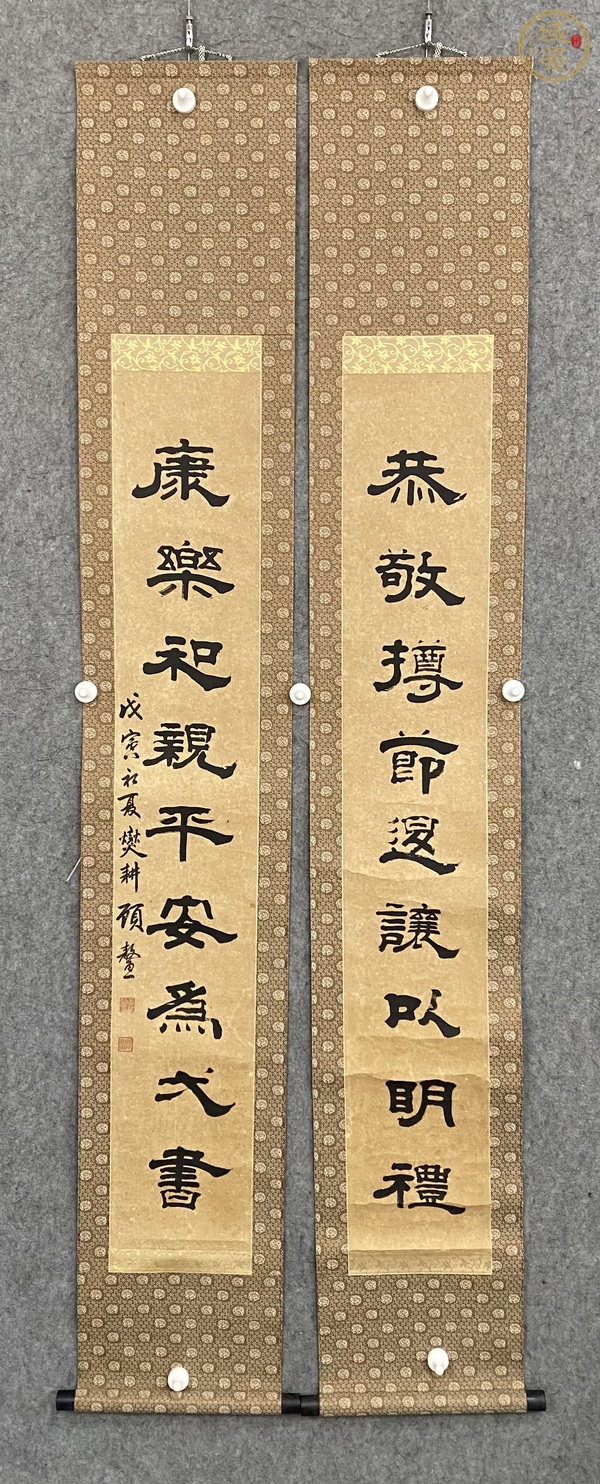 恭敬撙節退讓以明禮
康樂和親平安為弌書
戊寅初夏燮耕顧鼇